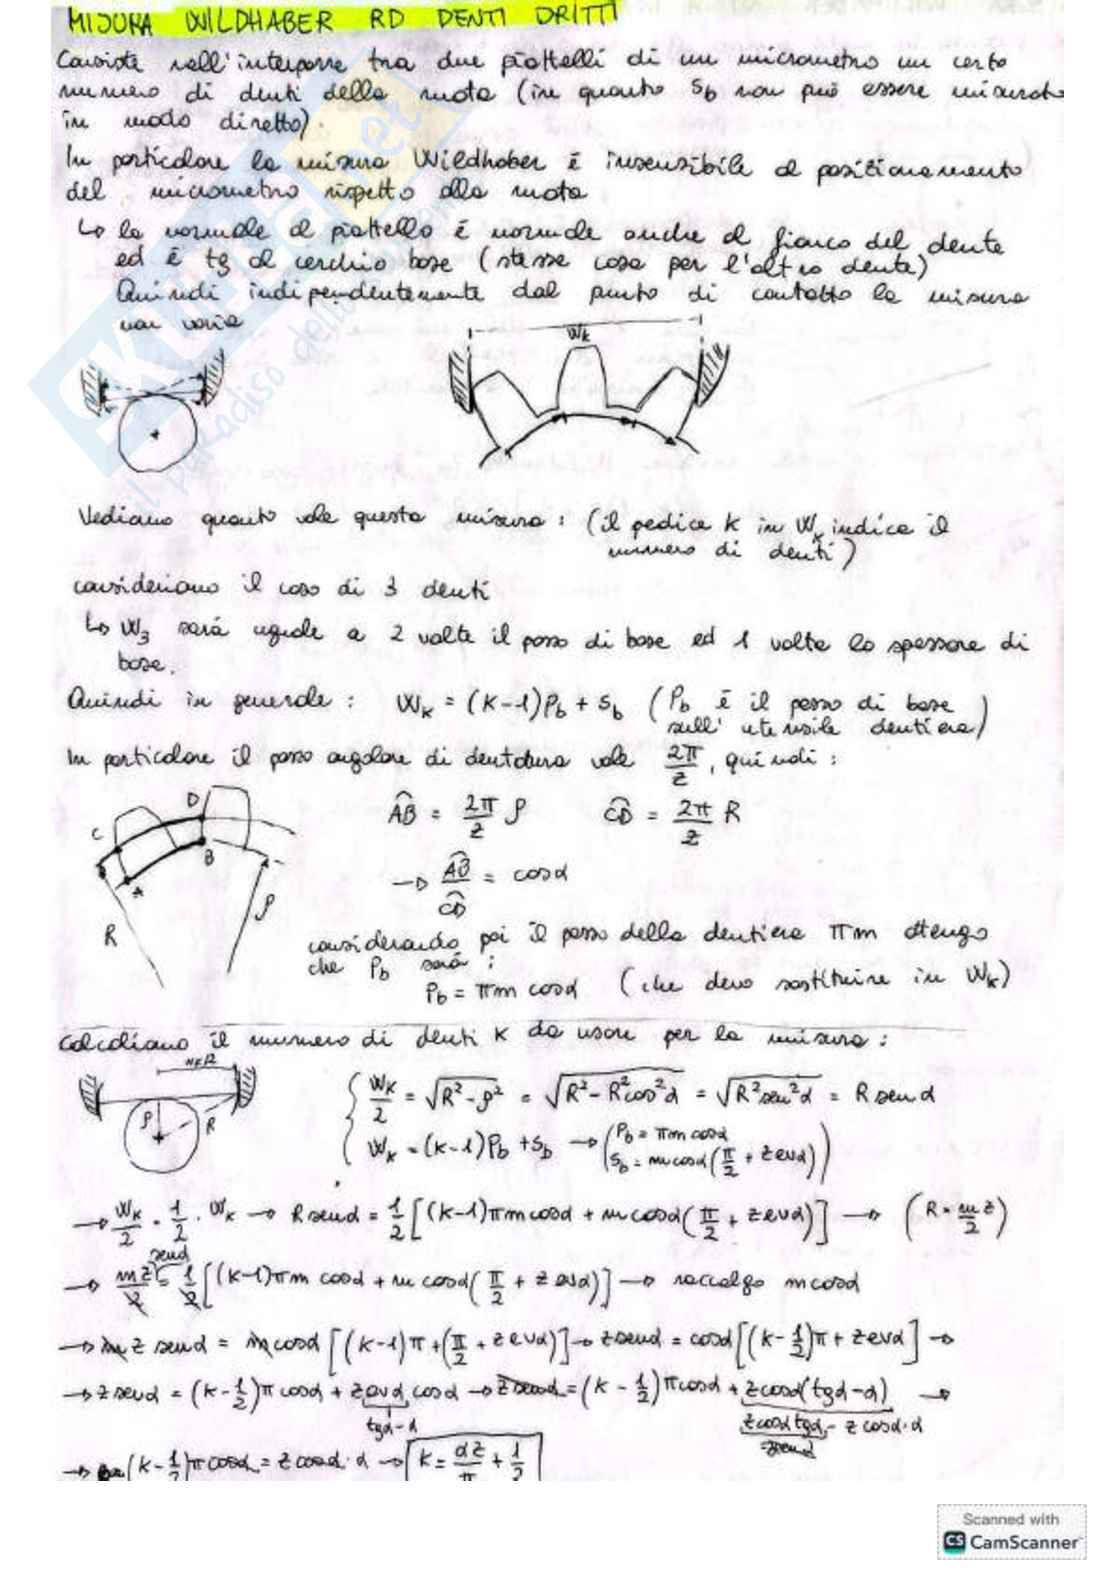 MISURA WILDHABER RD DENTI DRITTI
Consiste nell'interporre tra due piattelli di un micrometro un certo
numero di denti della ruota (in quanto Sb non può essere misurato
in modo diretto).
In particolare la misura Wildhaber è insensibile al posizionamento
del micrometro rispetto alla ruota
↳ la normale al piattello è normale anche al fianco del dente
ed è tg al cerchio base (stessa cosa per l'altro dente)
Quindi indipendentemente dal punto di contatto la misura
non varia
WK
Vediamo quanto vale questa misura: (il pedice K in WK indica il
numero di denti)
consideriamo il caso di 3 denti
↳ W3 sarà uguale a 2 volte il passo di base ed 1 volta lo spessore di
base.
Quindi in generale: WK = (K-1)Pb + Sb (Pb è il passo di base
sull'utensile dentiera)
In particolare il passo angolare di dentatura vale 2π/z, quindi:
C D A B R ρ
AB = 2π/z ρ CD = 2π/z R
→ AB/CD = cosα
considerando poi il passo della dentiera πm ottengo
che Pb sarà:
Pb = πm cosα (che devo sostituire in WK)
Calcoliamo il numero di denti K da usare per la misura:
WK/2 ρ R
WK/2 = √R²-ρ² = √R²-R²cos²α = √R²sen²α = R senα
WK = (K-1)Pb + Sb → (Pb = πm cosα
Sb = m cosα(π/2 + z evα))
→ WK/2 = 1/2 · WK → R senα = 1/2 [(K-1)πm cosα + m cosα(π/2 + z evα)] → (R = m/2 z)
→ mz/2 senα = 1/2 [(K-1)πm cosα + m cosα(π/2 + z evα)] → raccolgo m cosα
→ m z senα = m cosα [(K-1)π + (π/2 + z evα)] → z senα = cosα [(K-1/2)π + z evα] →
→ z senα = (K-1/2)π cosα + z evα cosα → z senα = (K-1/2)π cosα + z cosα(tgα-α) →
tgα-α
z cosα tgα - z cosα·α
z senα
(K-1/2)π cosα = z cosα·α → K = αz/π + 1/2
SKUOLA.net
il paradiso dello
Scanned with
CS CamScanner